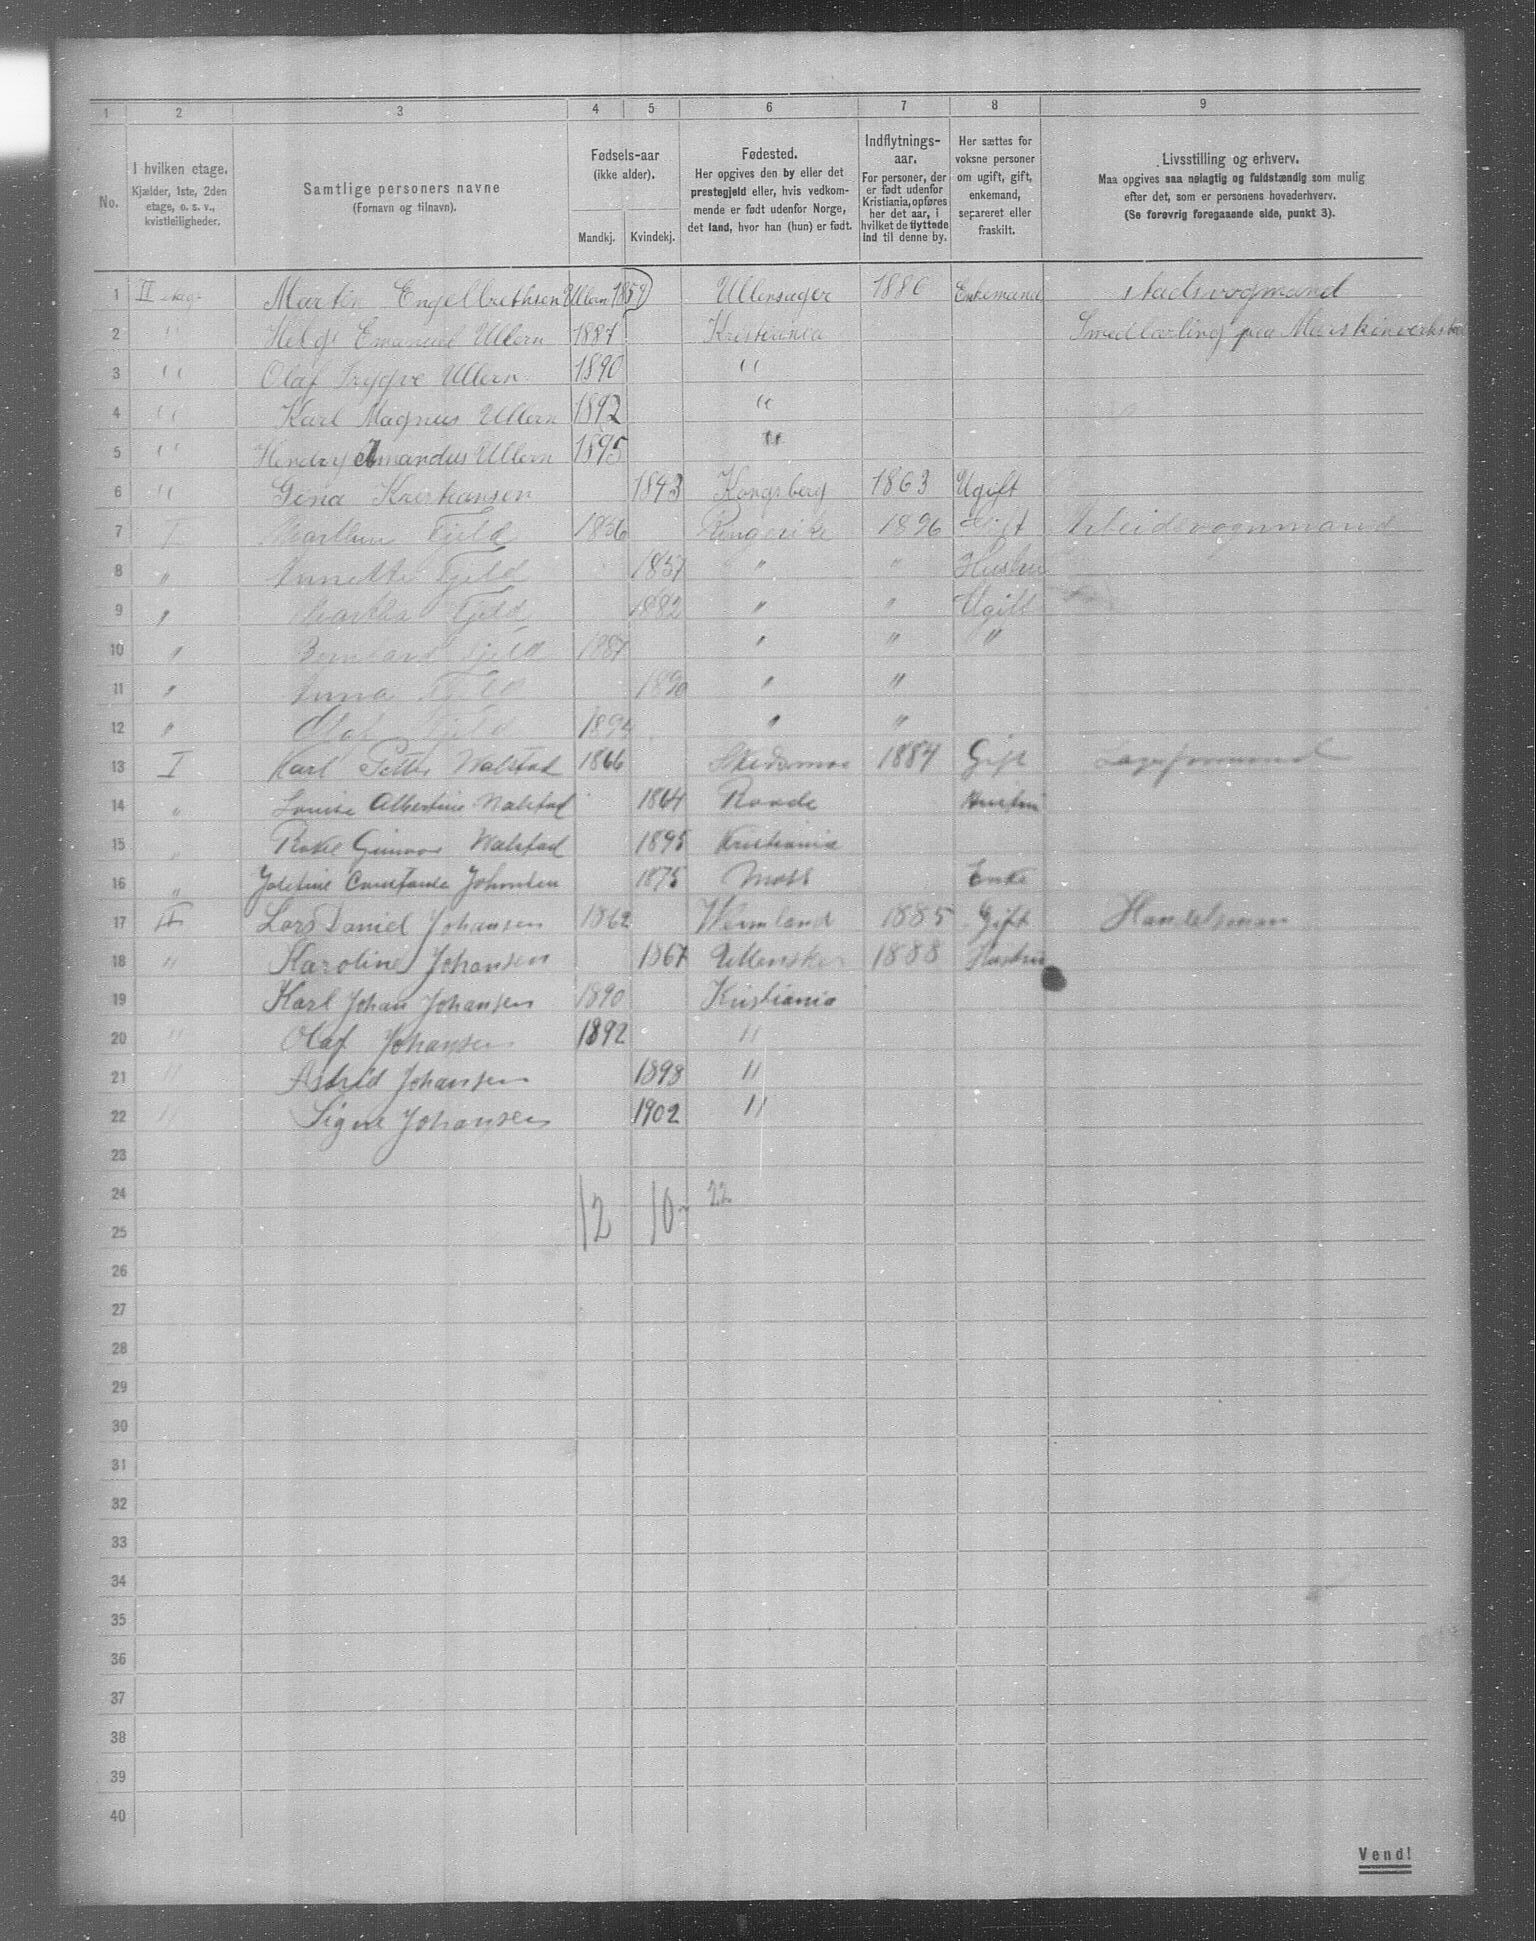 1 2 3 4 5 6 7 8 9
No.
I hvilken etage.
Kjælder, 1ste, 2den
etage, o. s. v.,
kvistleiligheder.
Samtlige personers navne
(Fornavn og tilnavn).
Fødsels-aar
(ikke alder).
Mandkj. Kvindekj.
Fødested.
Her opgives den by eller det
prestegjeld eller, hvis vedkom-
mende er født udenfor Norge,
det land, hvor han (hun) er født.
Indflytnings-
aar.
For personer, der
er født udenfor
Kristiania, opføres
her det aar, i
hvilket de flyttede
ind til denne by.
Her sættes for
voksne personer
om ugift, gift,
enkemand,
separeret eller
fraskilt.
Livsstilling og erhverv.
Maa opgives saa nøiagtig og fuldstændig som mulig
efter det, som er personens hovederhverv.
(Se forøvrig foregaaende side, punkt 3).
1 II etage Martin Engelbrethsen Ullern 1859 Ullensager 1880 Enkemand stadsvogmand
2 " Helge Emanuel Ullern 1887 Kristiania Smedlærling paa
3 " Olaf Trygve Ullern 1890 "
4 " Karl Magnus Ullern 1892 "
5 " Hendry Amandus Ullern 1895 "
6 " Gina Kristiansen 1843 Kongsberg 1863 Ugift
7 I Fjeld 1856 Ringerike 1896 Gift Arbeidsvognmand
8 " Annette Fjeld 1857 " " Hustru
9 " Martha Fjeld 1882 " " Ugift
10 " Bernhard Fjeld 1887 " " "
11 " Anna Fjeld 1890 " "
12 " Olaf Fjeld 1894 " "
13 I Karl Petter Walstad 1866 Skedsmo 1884 Gift
14 " Louise Albertine Walstad 1864 Raade Hustru
15 " Walstad 1895 Kristiania
16 " Johnsen 1875 Moss Enke
17 II Lars Daniel Johansen 1862 Wermland 1885 Gift Handelsman
18 " Karoline Johansen 1867 1888 Hustru
19 Karl Johan Johansen 1890 Kristiania
20 " Olaf Johansen 1892 "
21 " Astrid Johansen 1898 "
22 " Signe Johansen 1902 "
23
24
12 10 22
25
26
27
28
29
30
31
32
33
34
35
36
37
38
39
40
Vend!